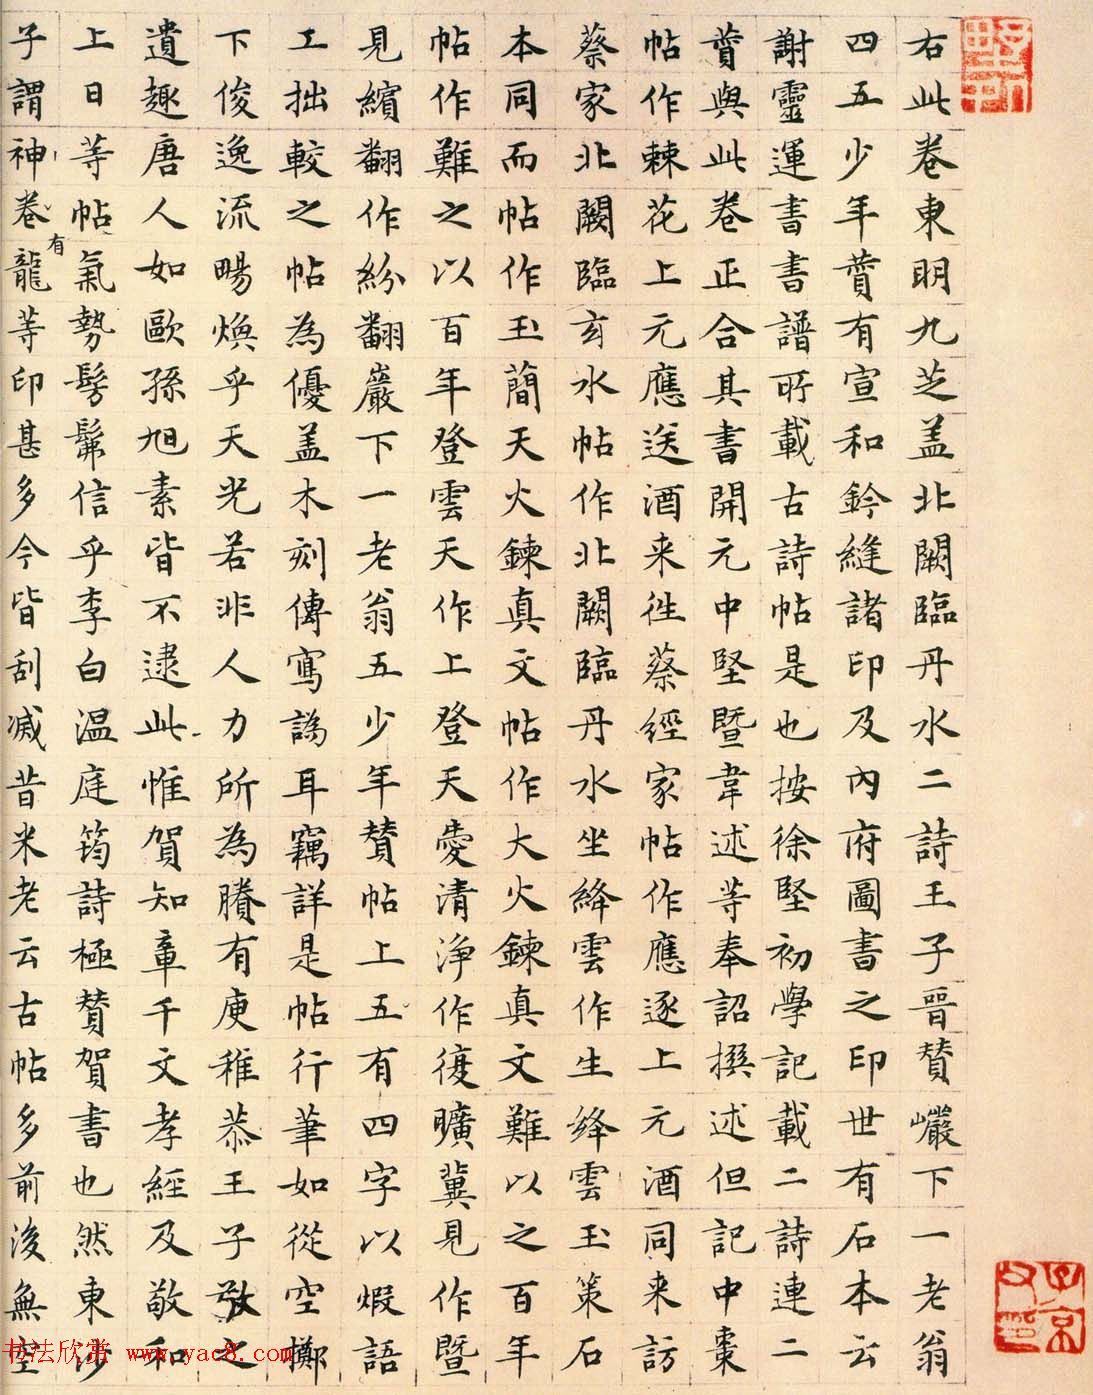 右此卷東明九芝盖北闕臨丹水二詩王子晉贊巗下一老翁
四五少年贊有宣和鈐縫諸印及內府圖書之印世有石本云
謝靈運書書譜所載古詩帖是也按徐堅初學記載二詩連二
賛與此卷正合其書開元中堅暨韋述等奉詔撰述但記中棗
帖作棘花上元應送酒来徃蔡經家帖作應逐上元酒同来訪
蔡家北闕臨玄水帖作北闕臨丹水坐絳雲作生絳雲玉策石
本同而帖作玉蕳天火鍊真文帖作大火鍊真文難以之百年
帖作難之以百年登雲天作上登天愛清淨作復曠冀見作暨
見繽翻作紛翻巖下一老翁五少年贊帖上五有四字以煆語
工拙較之帖為優盖木刻傳寫譌耳竊詳是帖行筆如從空擲
下俊逸流暢煥乎天光若非人力所為賸有庾稚恭王子敬之
遺趣唐人如歐孫旭素皆不逮此惟賀知章千文孝經及敬和
上日等帖氣勢髣髴信乎李白温庭筠詩極贊賀書也然東沙
子謂神卷有龍等印甚多今皆刮滅昔米老云古帖多前後無空
书法欣赏 www.yac8.com